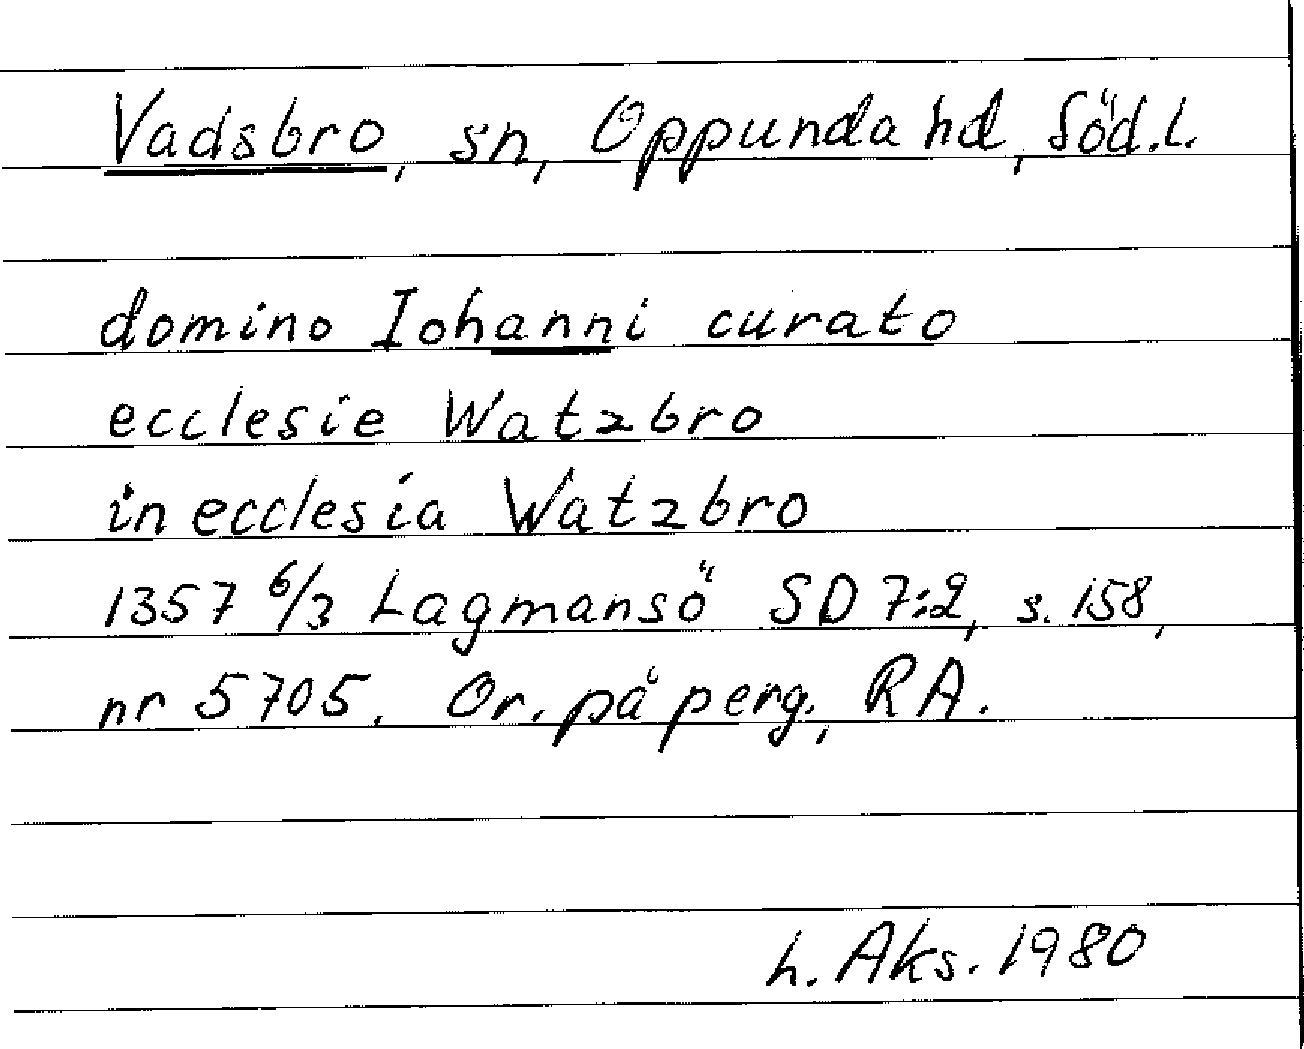 Vadsbro, sn, Oppunda hd, Söd.l.
domino Iohanni curato
ecclesie Watzbro
in ecclesia Watzbro
1357 6/3 Lagmansö SD 7:2, s. 158,
nr 5705. Or. på perg., RA.
h. Aks. 1980